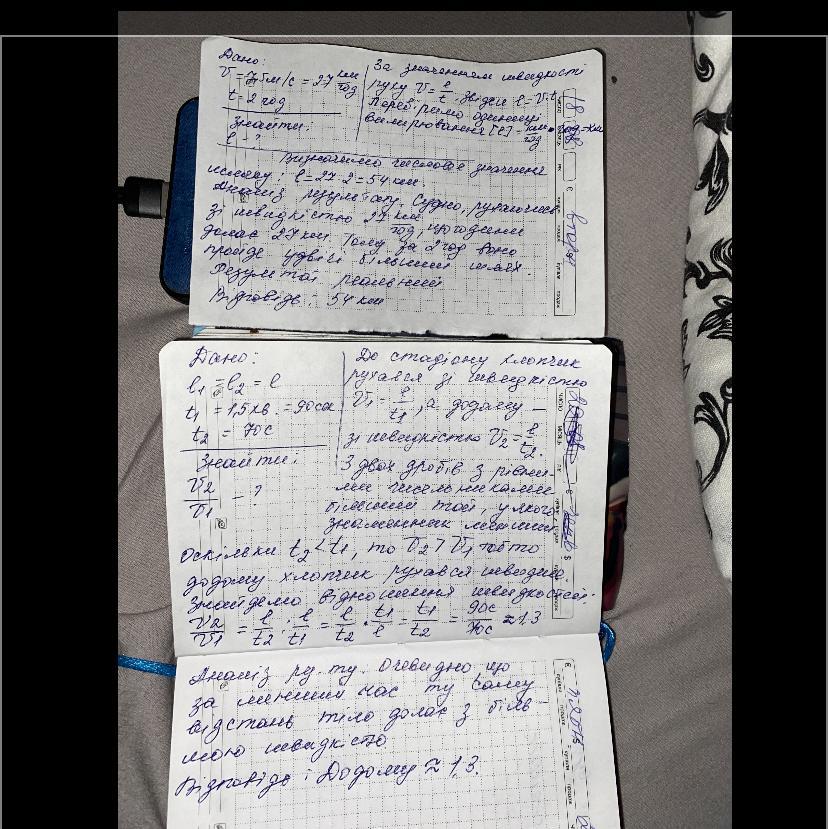 Дано:
V = 7,5 м/с = 27 км/год
t = 2 год
Знайти:
l - ?
За значенням швидкості
руху V = l/t. Звідси l = V·t
Перевіримо одиниці
вимірювання [l] = км/год · год = км
Визначимо числове значення
шляху: l = 27·2 = 54 км.
Аналіз результату. Судно, рухаючись
зі швидкістю 27 км/год, щогодини
долає 27 км. Тому за 2 год воно
пройде удвічі більший шлях.
Результат реальний
Відповідь: 54 км
18
вівторок
Дано:
l₁ = l₂ = l
t₁ = 1,5 хв. = 90 сек
t₂ = 70 с
Знайти:
V₂/V₁ - ?
До стадіону хлопчик
рухався зі швидкістю
V₁ = l/t₁, а додому –
зі швидкістю V₂ = l/t₂.
З двох дробів з рівни-
ми чисельниками
більший той, у якого
знаменник менший
оскільки t₂ < t₁, то V₂ > V₁ тобто
додому хлопчик рухався швидше
Знайдемо відношення швидкостей:
V₂/V₁ = l/t₂ : l/t₁ = l/t₂ · t₁/l = t₁/t₂ = 90с/70с ≈ 1,3
Аналіз ру-ту. Очевидно що
за менший час ту саму
відстань тіло долає з біль-
шою швидкістю
Відповідь: Додому ≈ 1,3.